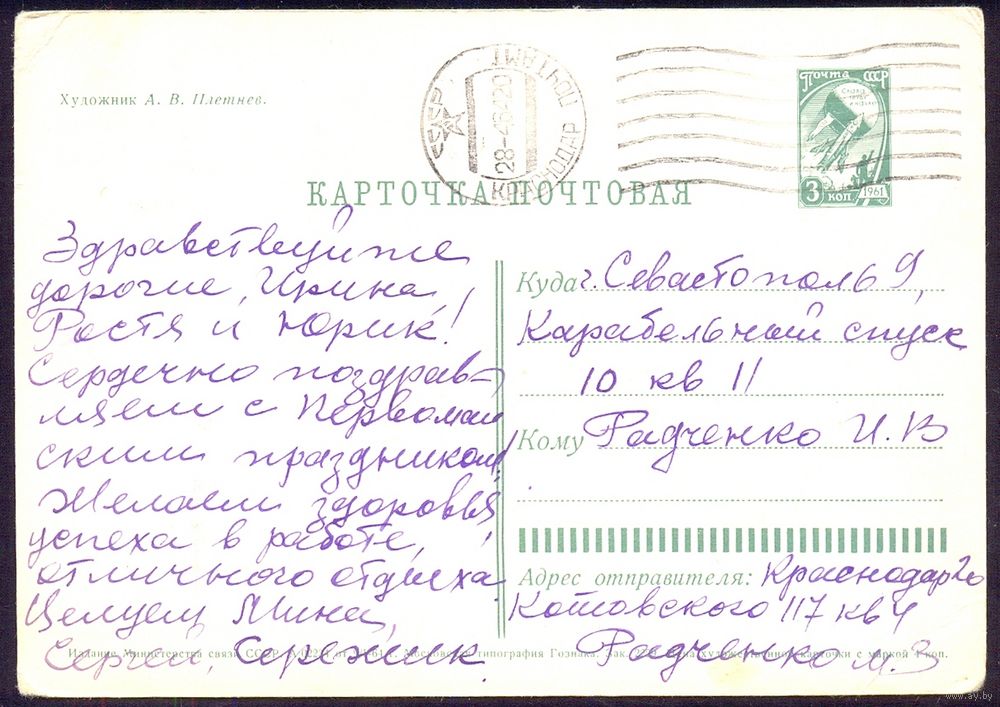 Художник А. В. Плетнев.
СССР ПОЧТАМТ
КРАСНОДАР
Почта СССР
3 коп 1961
КАРТОЧКА ПОЧТОВАЯ
Здравствуйте
дорогие, Ирина,
Ростя и Юрик!
Сердечно поздрав-
ляем с Первомай
ским праздником!
Желаем здоровья,
успеха в работе,
отличного отдыха
Целуем Мина,
Сергей, Сережик
Куда г. Севастополь 9,
Карабельный спуск
10 кв 11
Кому Радченко И. В
Адрес отправителя: Краснодар 20
Котовского 117 кв 4
Радченко М. В
Издание Министерства связи СССР
Московская типография Гознака. Зак.
художественной карточки с маркой
коп.
www.ay.by